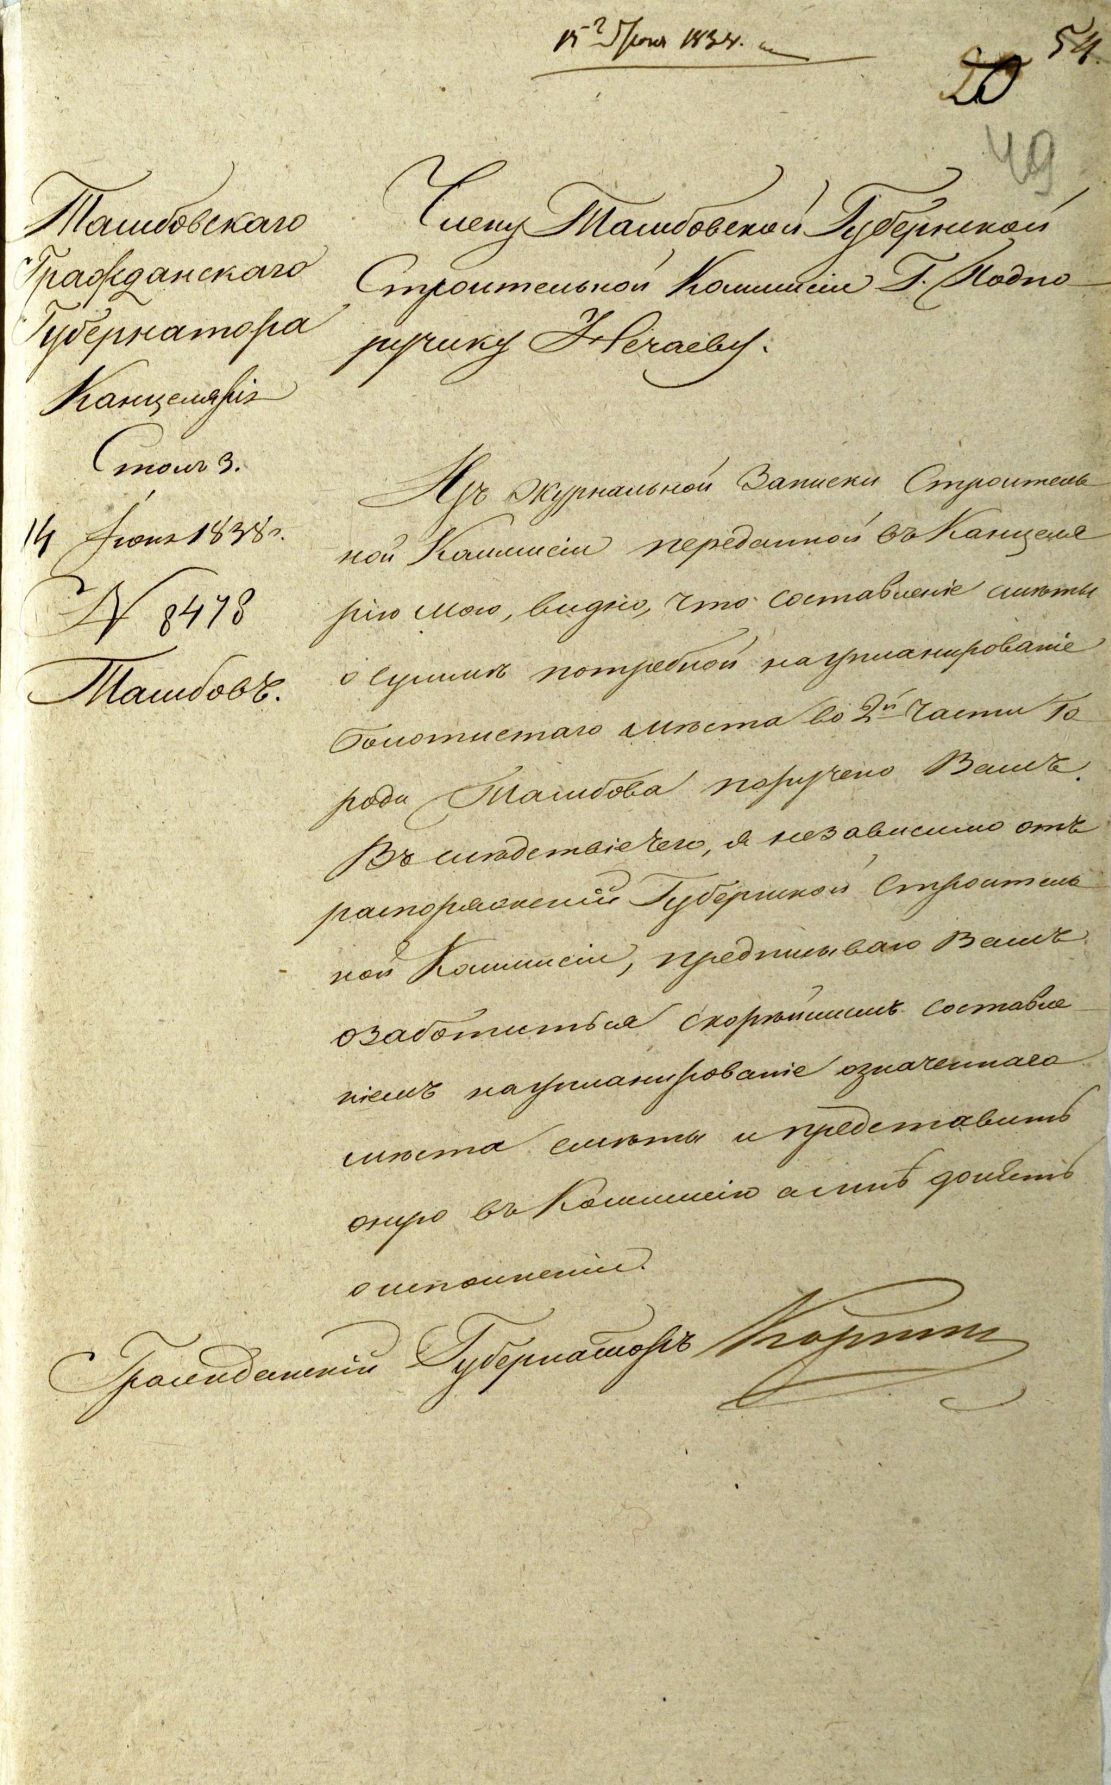 15го Іюня 1838.
54.
20
49
Тамбовскаго
Гражданскаго
Губернатора
Канцелярія
Столъ 3.
14 Іюня 1838 г.
N 8478
Тамбовъ.
Члену Тамбовской Губернской
Строительной Коммисіи Г. Подпо-
ручику Нечаеву.
Изъ журнальной Записки Строитель
ной Коммисіи переданной въ Канцеля
рію мою, видно, что составленіе смѣты
о суммѣ потребной на урланированіе
болотистаго мѣста во 2й части Го
рода Тамбова поручено Вамъ.
Въ слѣдствіе чего, я независимо отъ
распоряженій Губернской Строитель
ной Коммисіи, предписываю Вамъ
озаботиться скорѣйшимъ составле
ніемъ на урланированіе означеннаго
мѣста смѣты и представить
оную въ Коммисію а мнѣ донесть
о исполненіи.
Гражданскій Губернаторъ Корнил